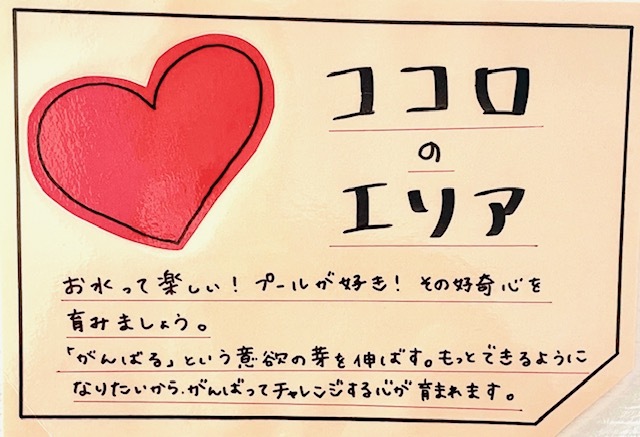 ココロ
の
エリア
お水って楽しい！プールが好き！その好奇心を
育みましょう。
「がんばる」という意欲の芽を伸ばす。もっとできるように
なりたいから、がんばってチャレンジする心が育まれます。